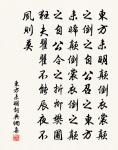 東方未明顛倒衣裳顛
之倒之自公召之東方
未晞顛倒裳衣倒之顛
之自公令之折柳樊圃
狂夫瞿瞿不能辰夜不
夙則莫
東方未明詩